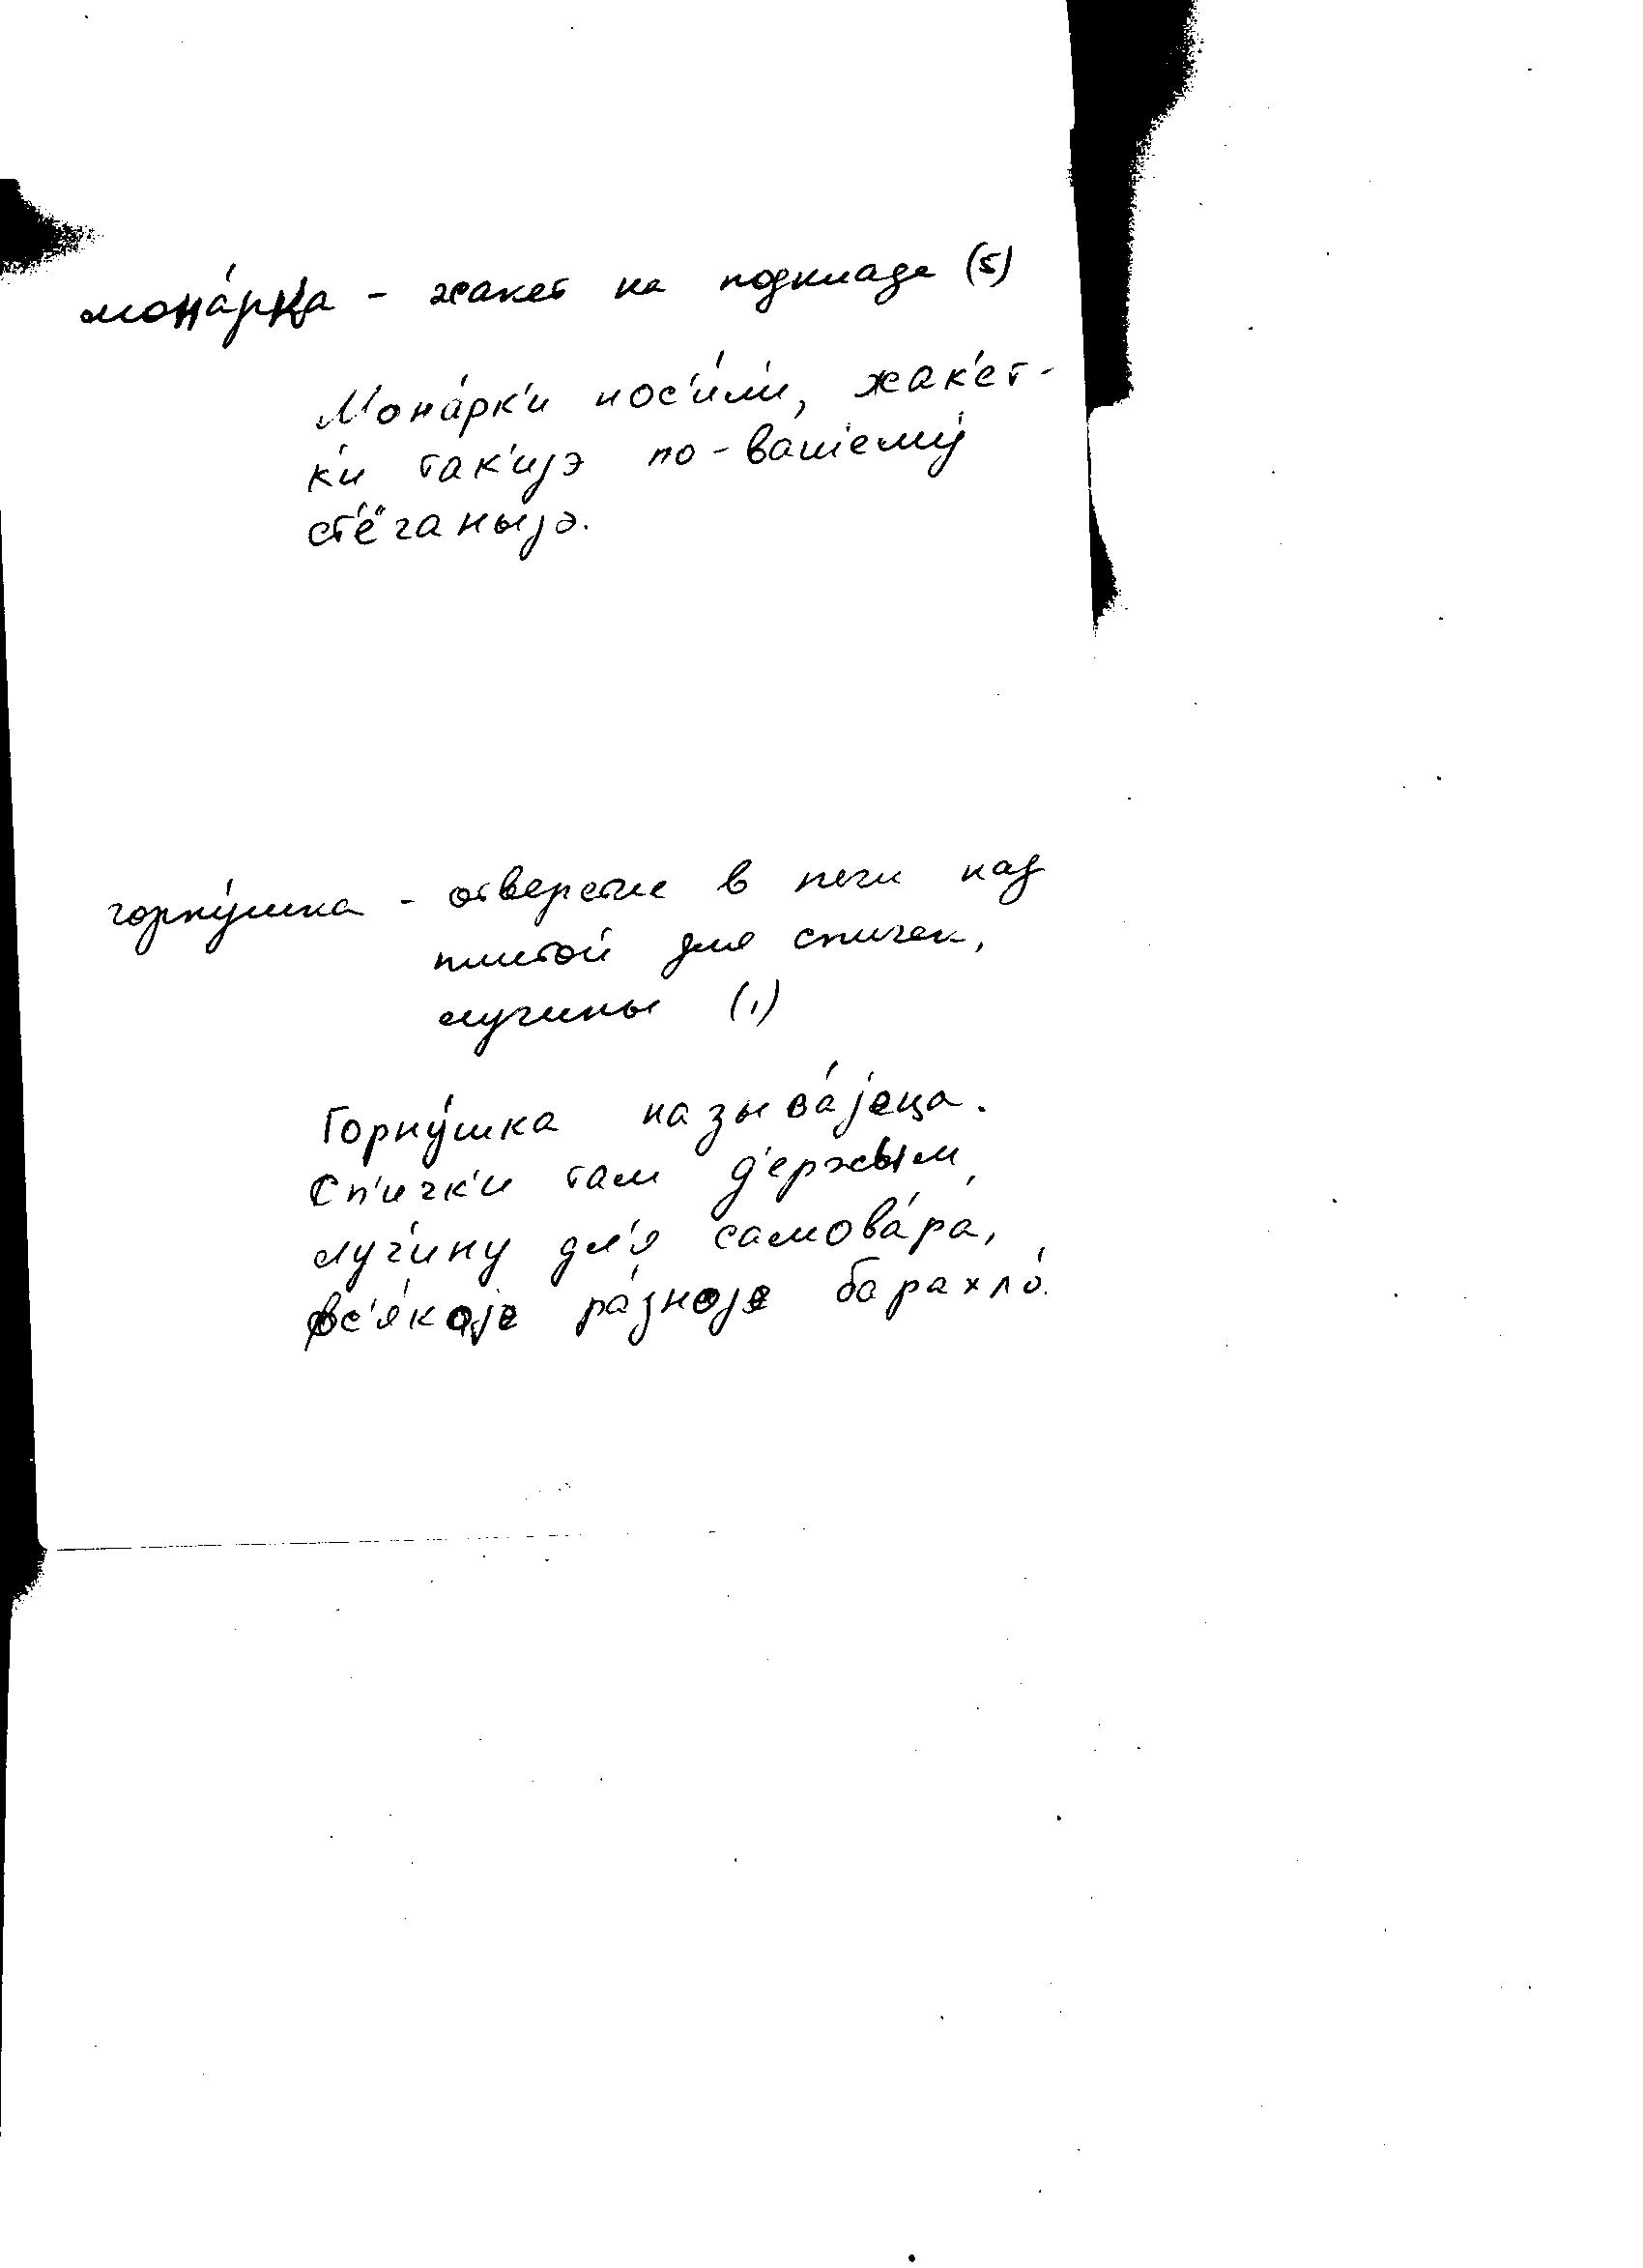 мона́рка - жакет на подкладе (5)
Мона́рк'и нос'и́л'и, жак'е́т-
к'и так'иjэ по-ва́шему́
ст'ёганыjэ.
горну́шка - отверстие в печи над
плитой для спичек,
лучины (1)
Горну́шка называ́jеца.
Сп'ичк'и там д'ержы́м,
луч'и́ну дл'я самова́ра,
вс'я́коjе ра́зноjе барахло́.